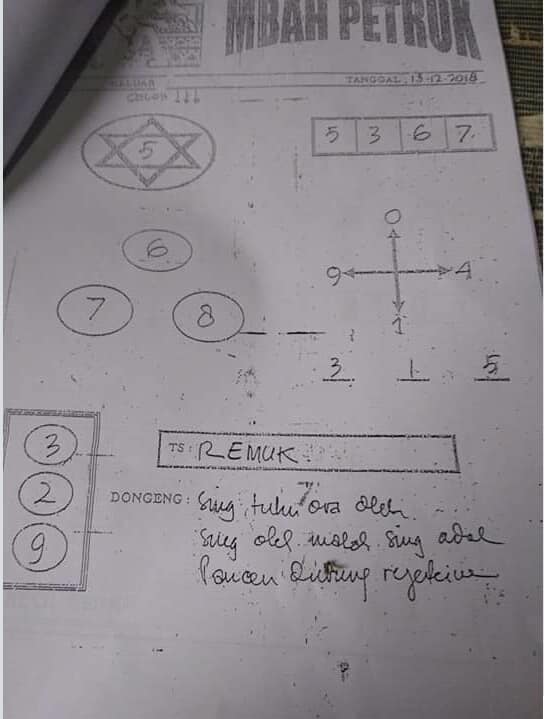 MBAH PETRUK
KELUAR
TANGGAL : 13-12-2018
COLOK
5
5 3 6 7
0
6
9 4
7 8
1
3 1 5
3
TS : REMUK
2
DONGENG : Sing tuku ora oleh
Sing oleh malah sing adol
9
Pancen durung rejekine